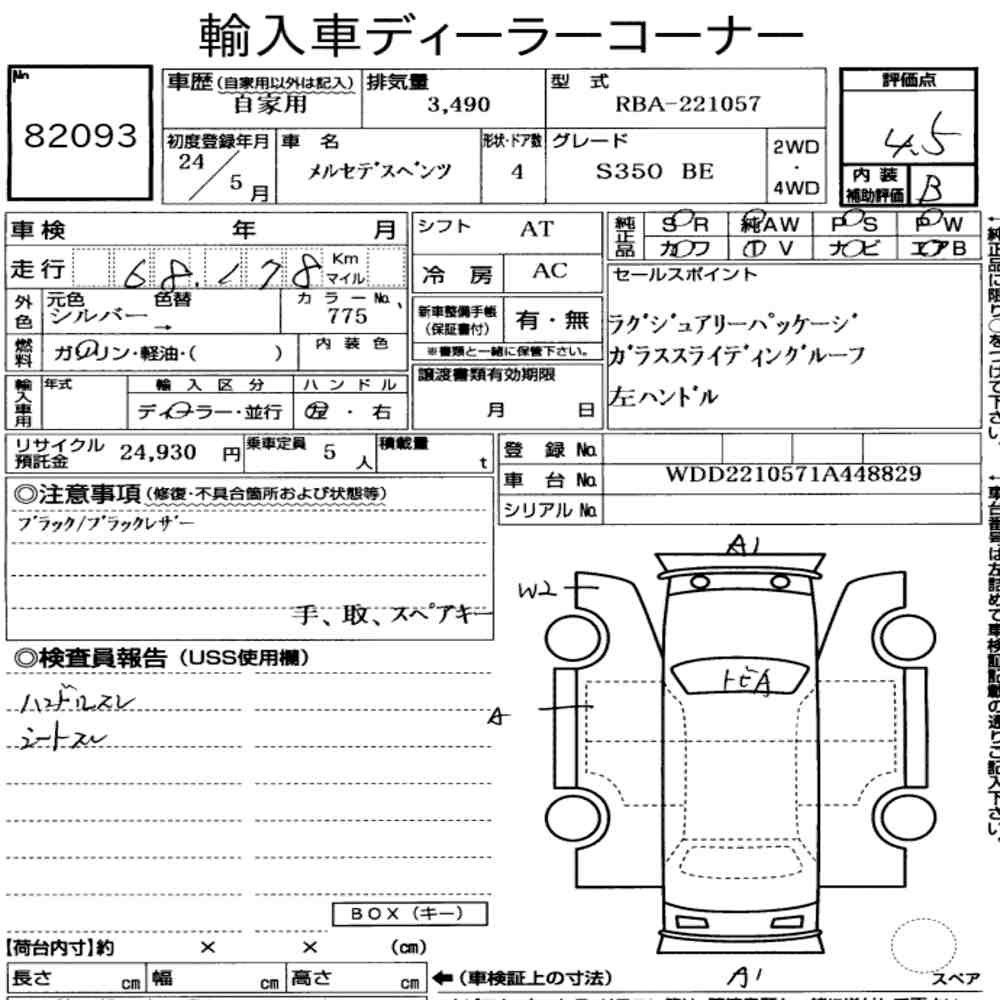 輸入車ディーラーコーナー
No.
82093
車歴(自家用以外は記入)
自家用
排気量
3,490
型 式
RBA-221057
評価点
4.5
初度登録年月
24/5月
車 名
メルセデスベンツ
形状・ドア数
4
グレード
S350 BE
2WD
・
4WD
内装
補助評価
B
車検 年 月
シフト AT
純正品
SR 純AW PS PW
カワ TV ナビ エアB
走行 68,178 Km マイル
冷房 AC
セールスポイント
ラグジュアリーパッケージ
ガラススライディングルーフ
左ハンドル
外色
元色 色替
シルバー →
カラーNo.
775
新車整備手帳
(保証書付)
有・無
※書類と一緒に保管下さい。
燃料
ガソリン・軽油・( )
内装色
譲渡書類有効期限
月 日
輸入車用
年式
輸入区分
ディーラー・並行
ハンドル
左・右
リサイクル
預託金
24,930 円
乗車定員 5 人
積載量 t
登録No.
車台No. WDD2210571A448829
シリアルNo.
◎注意事項(修復・不具合箇所および状態等)
ブラック/ブラックレザー
手、取、スペアキー
◎検査員報告(USS使用欄)
ハンドルスレ
シートスレ
A1
W2
トビA
A
A1
BOX(キー)
【荷台内寸】約 × × (cm)
長さ cm 幅 cm 高さ cm
←(車検証上の寸法)
スペア
←純正品に限り○をつけて下さい。
←車台番号は左詰めで車検証記載の通りご記入下さい。